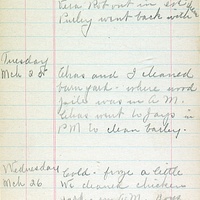 out in
Purley went back with
Tuesday
Mch 25 Chas and I cleaned
barn yard - where wood
piile was in A.M.
Chas went to Jays in
PM to clean barley.
Wednesday Cold - froze a little
Mch 26 We cleaned chickens
in A.M.